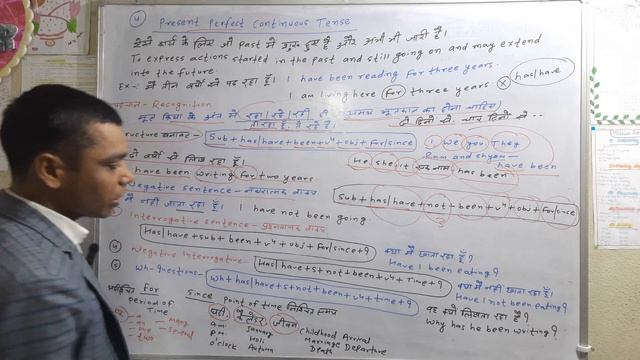 ④ Present Perfect Continuous Tense
ऐसे कार्य के लिए जो Past में शुरू हुए हैं और अभी भी जारी हैं।
To express actions started in the past and still going on and may extend
into the future.
Ex- मैं तीन वर्षों से पढ़ रहा हूँ। I have been reading for three years.
I am living here for three years. ✗ has/have
पहचान - Recognition
मूल क्रिया के अंत में रहा/रहे/रही
दो दिनों से, चार दिनों से..
Structure Sub + has/have + been + v⁴ + obj + for/since
I We you They
Ram and shyam
have been
He she it has been
वर्षों से लिख रहा हूँ।
have been writing for two years.
Negative Sentence - नकारात्मक वाक्य
Sub + has/have + not + been + v⁴ + obj + for/since
मैं नहीं जाता रहा हूँ। I have not been going.
Interrogative Sentence - प्रश्नवाचक वाक्य
Has/have + sub + been + v⁴ + obj + for/since + ?
क्या मैं खाता रहा हूँ?
Have I been eating?
④ Negative Interrogative - Has/have + s + not + been + v⁴ + Time + ?
क्या मैं नहीं खाता रहा हूँ।
Have I not been eating?
⑤ Wh-Questions - Wh + has/have + s + not + been + v⁴ + time + ?
वह क्यों लिखता रहा है?
Why has he been writing?
for
Period of
Time
many
several
two
Since Point of time निश्चित समय
घड़ी कैलेंडर जीवन
am January Childhood Arrival
pm Holi Marriage Departure
o'clock Autumn Death